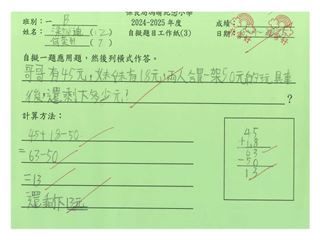 2024-2025 年度
班別：一 B
成績：
姓名： (12)
(7)
自擬題目工作紙(3)
日期：
自擬一題應用題，然後列橫式作答。
哥哥有45元，妹妹有18元，兩人合買一架50元的玩具車
後，還剩下多少元？
?
計算方法：
45+18-50
=63-50
=13
還剩下13元
45
+18
63
-50
13